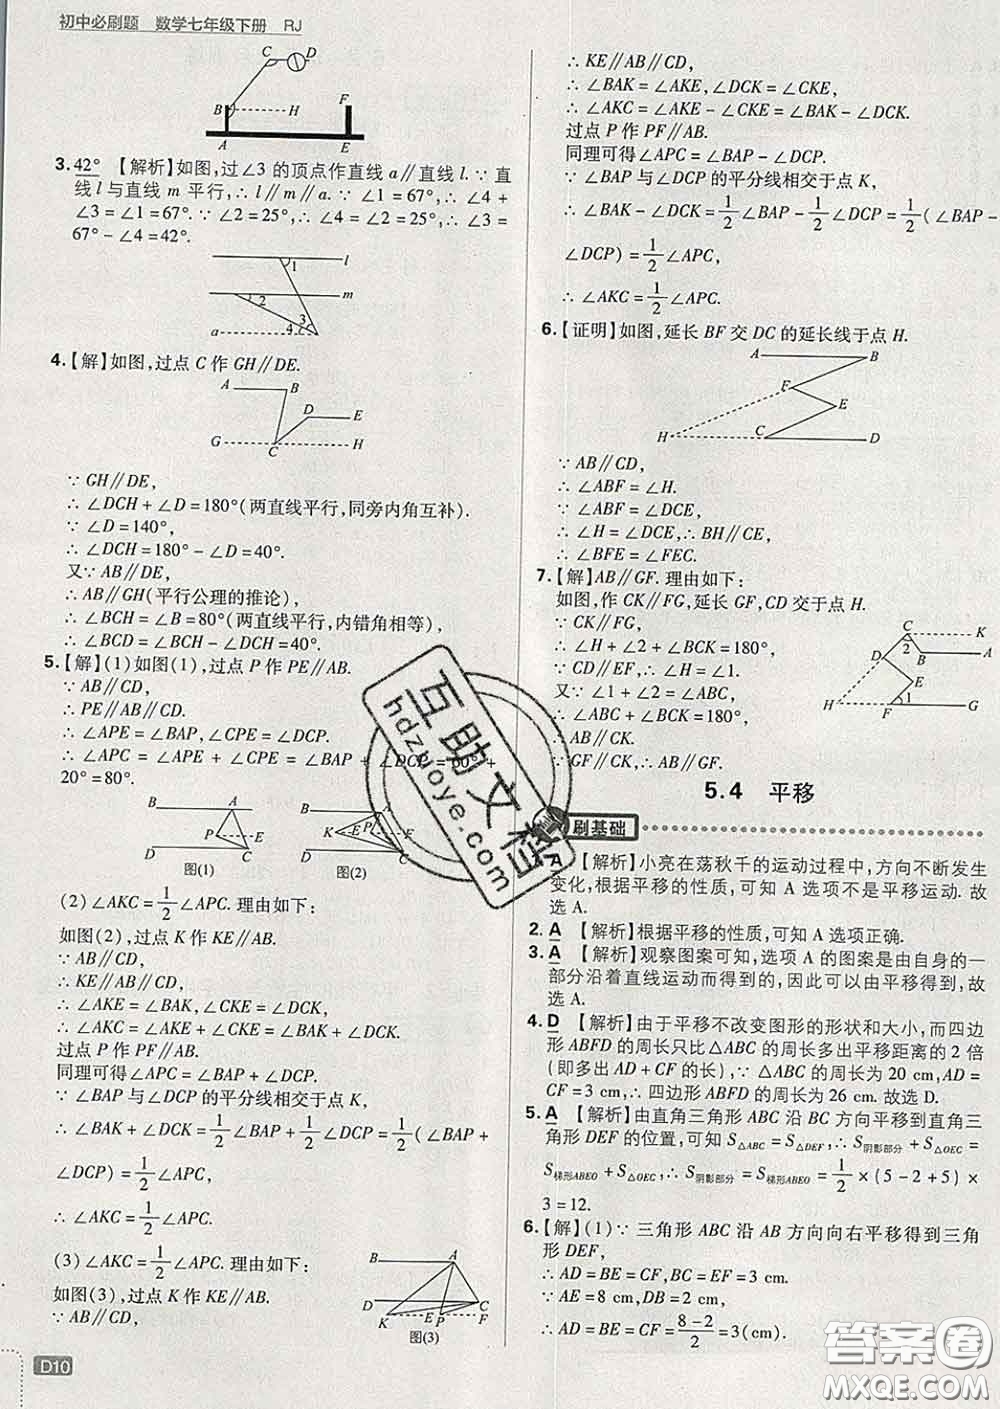 初中必刷题　数学七年级下册　RJ
C D
B H F
A E
3. 42°　【解析】如图,过∠3 的顶点作直线 a∥直线 l.∵ 直
线 l 与直线 m 平行,∴ l∥m∥a.∵ ∠1=67°,∴ ∠4+
∠3=∠1=67°.∵ ∠2=25°,∴ ∠4=∠2=25°,∴ ∠3=
67°-∠4=42°.
1 l
2 m
3
a 4
4.【解】如图,过点 C 作 GH∥DE.
A B
D E
G C H
∵ GH∥DE,
∴ ∠DCH+∠D=180°(两直线平行,同旁内角互补).
∵ ∠D=140°,
∴ ∠DCH=180°-∠D=40°.
又∵ AB∥DE,
∴ AB∥GH(平行公理的推论),
∴ ∠BCH=∠B=80°(两直线平行,内错角相等),
∴ ∠BCD=∠BCH-∠DCH=40°.
5.【解】(1)如图(1),过点 P 作 PE∥AB.
∵ AB∥CD,
∴ PE∥AB∥CD.
∴ ∠APE=∠BAP,∠CPE=∠DCP.
∴ ∠APC=∠APE+∠CPE=∠BAP+∠DCP=60°+
20°=80°.
B A B A
P E K E P
D C D C
图(1) 图(2)
(2)∠AKC=1/2∠APC.理由如下:
如图(2),过点 K 作 KE∥AB.
∵ AB∥CD,
∴ KE∥AB∥CD,
∴ ∠AKE=∠BAK,∠CKE=∠DCK,
∴ ∠AKC=∠AKE+∠CKE=∠BAK+∠DCK.
过点 P 作 PF∥AB.
同理可得∠APC=∠BAP+∠DCP.
∵ ∠BAP 与∠DCP 的平分线相交于点 K,
∴ ∠BAK+∠DCK=1/2∠BAP+1/2∠DCP=1/2(∠BAP+
∠DCP)=1/2∠APC,
∴ ∠AKC=1/2∠APC.
(3)∠AKC=1/2∠APC.理由如下:
如图(3),过点 K 作 KE∥AB.
∵ AB∥CD,
B A
D C
K E P F
图(3)
D10
∴ KE∥AB∥CD,
∴ ∠BAK=∠AKE,∠DCK=∠CKE,
∴ ∠AKC=∠AKE-∠CKE=∠BAK-∠DCK.
过点 P 作 PF∥AB.
同理可得∠APC=∠BAP-∠DCP.
∵ ∠BAP 与∠DCP 的平分线相交于点 K,
∴ ∠BAK-∠DCK=1/2∠BAP-1/2∠DCP=1/2(∠BAP-
∠DCP)=1/2∠APC,
∴ ∠AKC=1/2∠APC.
6.【证明】如图,延长 BF 交 DC 的延长线于点 H.
A B
F
E
H C D
∵ AB∥CD,
∴ ∠ABF=∠H.
∵ ∠ABF=∠DCE,
∴ ∠H=∠DCE,∴ BH∥CE,
∴ ∠BFE=∠FEC.
7.【解】AB∥GF.理由如下:
如图,作 CK∥FG,延长 GF,CD 交于点 H.
∵ CK∥FG,
∴ ∠H+∠2+∠BCK=180°.
∵ CD∥EF,∴ ∠H=∠1.
又∵ ∠1+∠2=∠ABC,
∴ ∠ABC+∠BCK=180°,
∴ AB∥CK.
∵ GF∥CK,∴ AB∥GF.
C K
2
D B A
E
H F 1 G
5.4　平移
刷基础
1. A　【解析】小亮在荡秋千的运动过程中,方向不断发生
变化,根据平移的性质,可知 A 选项不是平移运动.故
选 A.
2. A　【解析】根据平移的性质,可知 A 选项正确.
3. A　【解析】观察图案可知,选项 A 的图案是由自身的一
部分沿着直线运动而得到的,因此可以由平移得到.故
选 A.
4. D　【解析】由于平移不改变图形的形状和大小,而四边
形 ABFD 的周长只比△ABC 的周长多出平移距离的 2 倍
(即多出 AD+CF 的长),∵ △ABC 的周长为 20 cm,AD=
CF=3 cm,∴ 四边形 ABFD 的周长为 26 cm.故选 D.
5. A　【解析】由直角三角形 ABC 沿 BC 方向平移到直角三
角形 DEF 的位置,可知 S△ABC=S△DEF,∴ S阴影部分+S△OEC=
S梯形ABEO+S△OEC,∴ S阴影部分=S梯形ABEO=1/2×(5-2+5)×
3=12.
6.【解】(1)∵ 三角形 ABC 沿 AB 方向向右平移得到三角
形 DEF,
∴ AD=BE=CF,BC=EF=3 cm.
∵ AE=8 cm,DB=2 cm,
∴ AD=BE=CF=(8-2)/2=3(cm).
互助文档
hdzuoye.com
答案圈
MXQE.COM